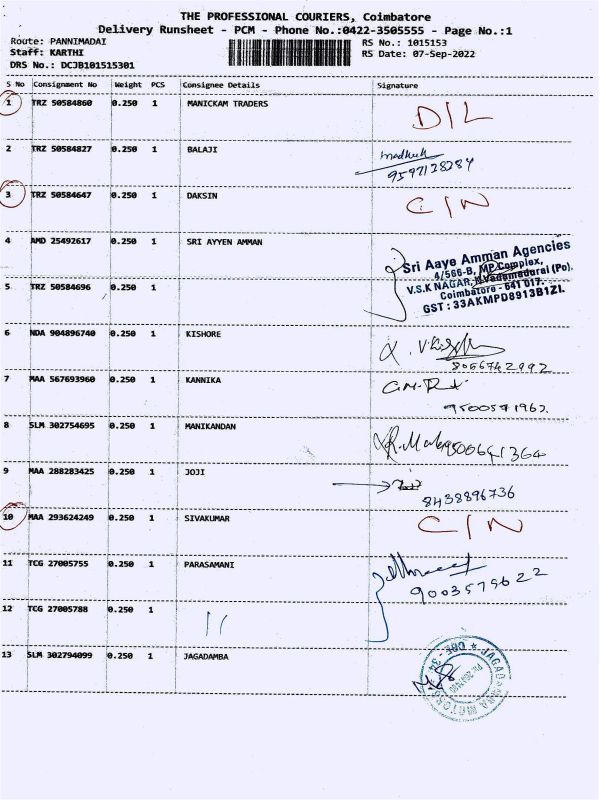 THE PROFESSIONAL COURIERS, Coimbatore
Delivery Runsheet - PCM - Phone No.:0422-3505555 - Page No.:1
Route: PANNIMADAI
Staff: KARTHI
DRS No.: DCJB101515301
RS No.: 1015153
RS Date: 07-Sep-2022
S No Consignment No Weight PCS Consignee Details Signature
1 TRZ 50584860 0.250 1 MANICKAM TRADERS D/L
2 TRZ 50584827 0.250 1 BALAJI
9597128284
3 TRZ 50584647 0.250 1 DAKSIN C/N
4 AMD 25492617 0.250 1 SRI AYYEN AMMAN
Sri Aaye Amman Agencies
4/566-B, MP Complex,
V.S.K NAGAR, N.Vadamadurai (Po),
Coimbatore - 641 017.
GST : 33AKMPD8913B1ZI.
5 TRZ 50584696 0.250 1
6 NDA 904896740 0.250 1 KISHORE
8056742992
7 MAA 567693960 0.250 1 KANNIKA
9500571962.
8 SLM 302754695 0.250 1 MANIKANDAN
9500691364
9 MAA 288283425 0.250 1 JOJI
8438896736
10 MAA 293624249 0.250 1 SIVAKUMAR C/N
11 TCG 27005755 0.250 1 PARASAMANI
9003575622
12 TCG 27005788 0.250 1 11
13 SLM 302794099 0.250 1 JAGADAMBA
JAGADAMBA MOTORS
CBE - 34